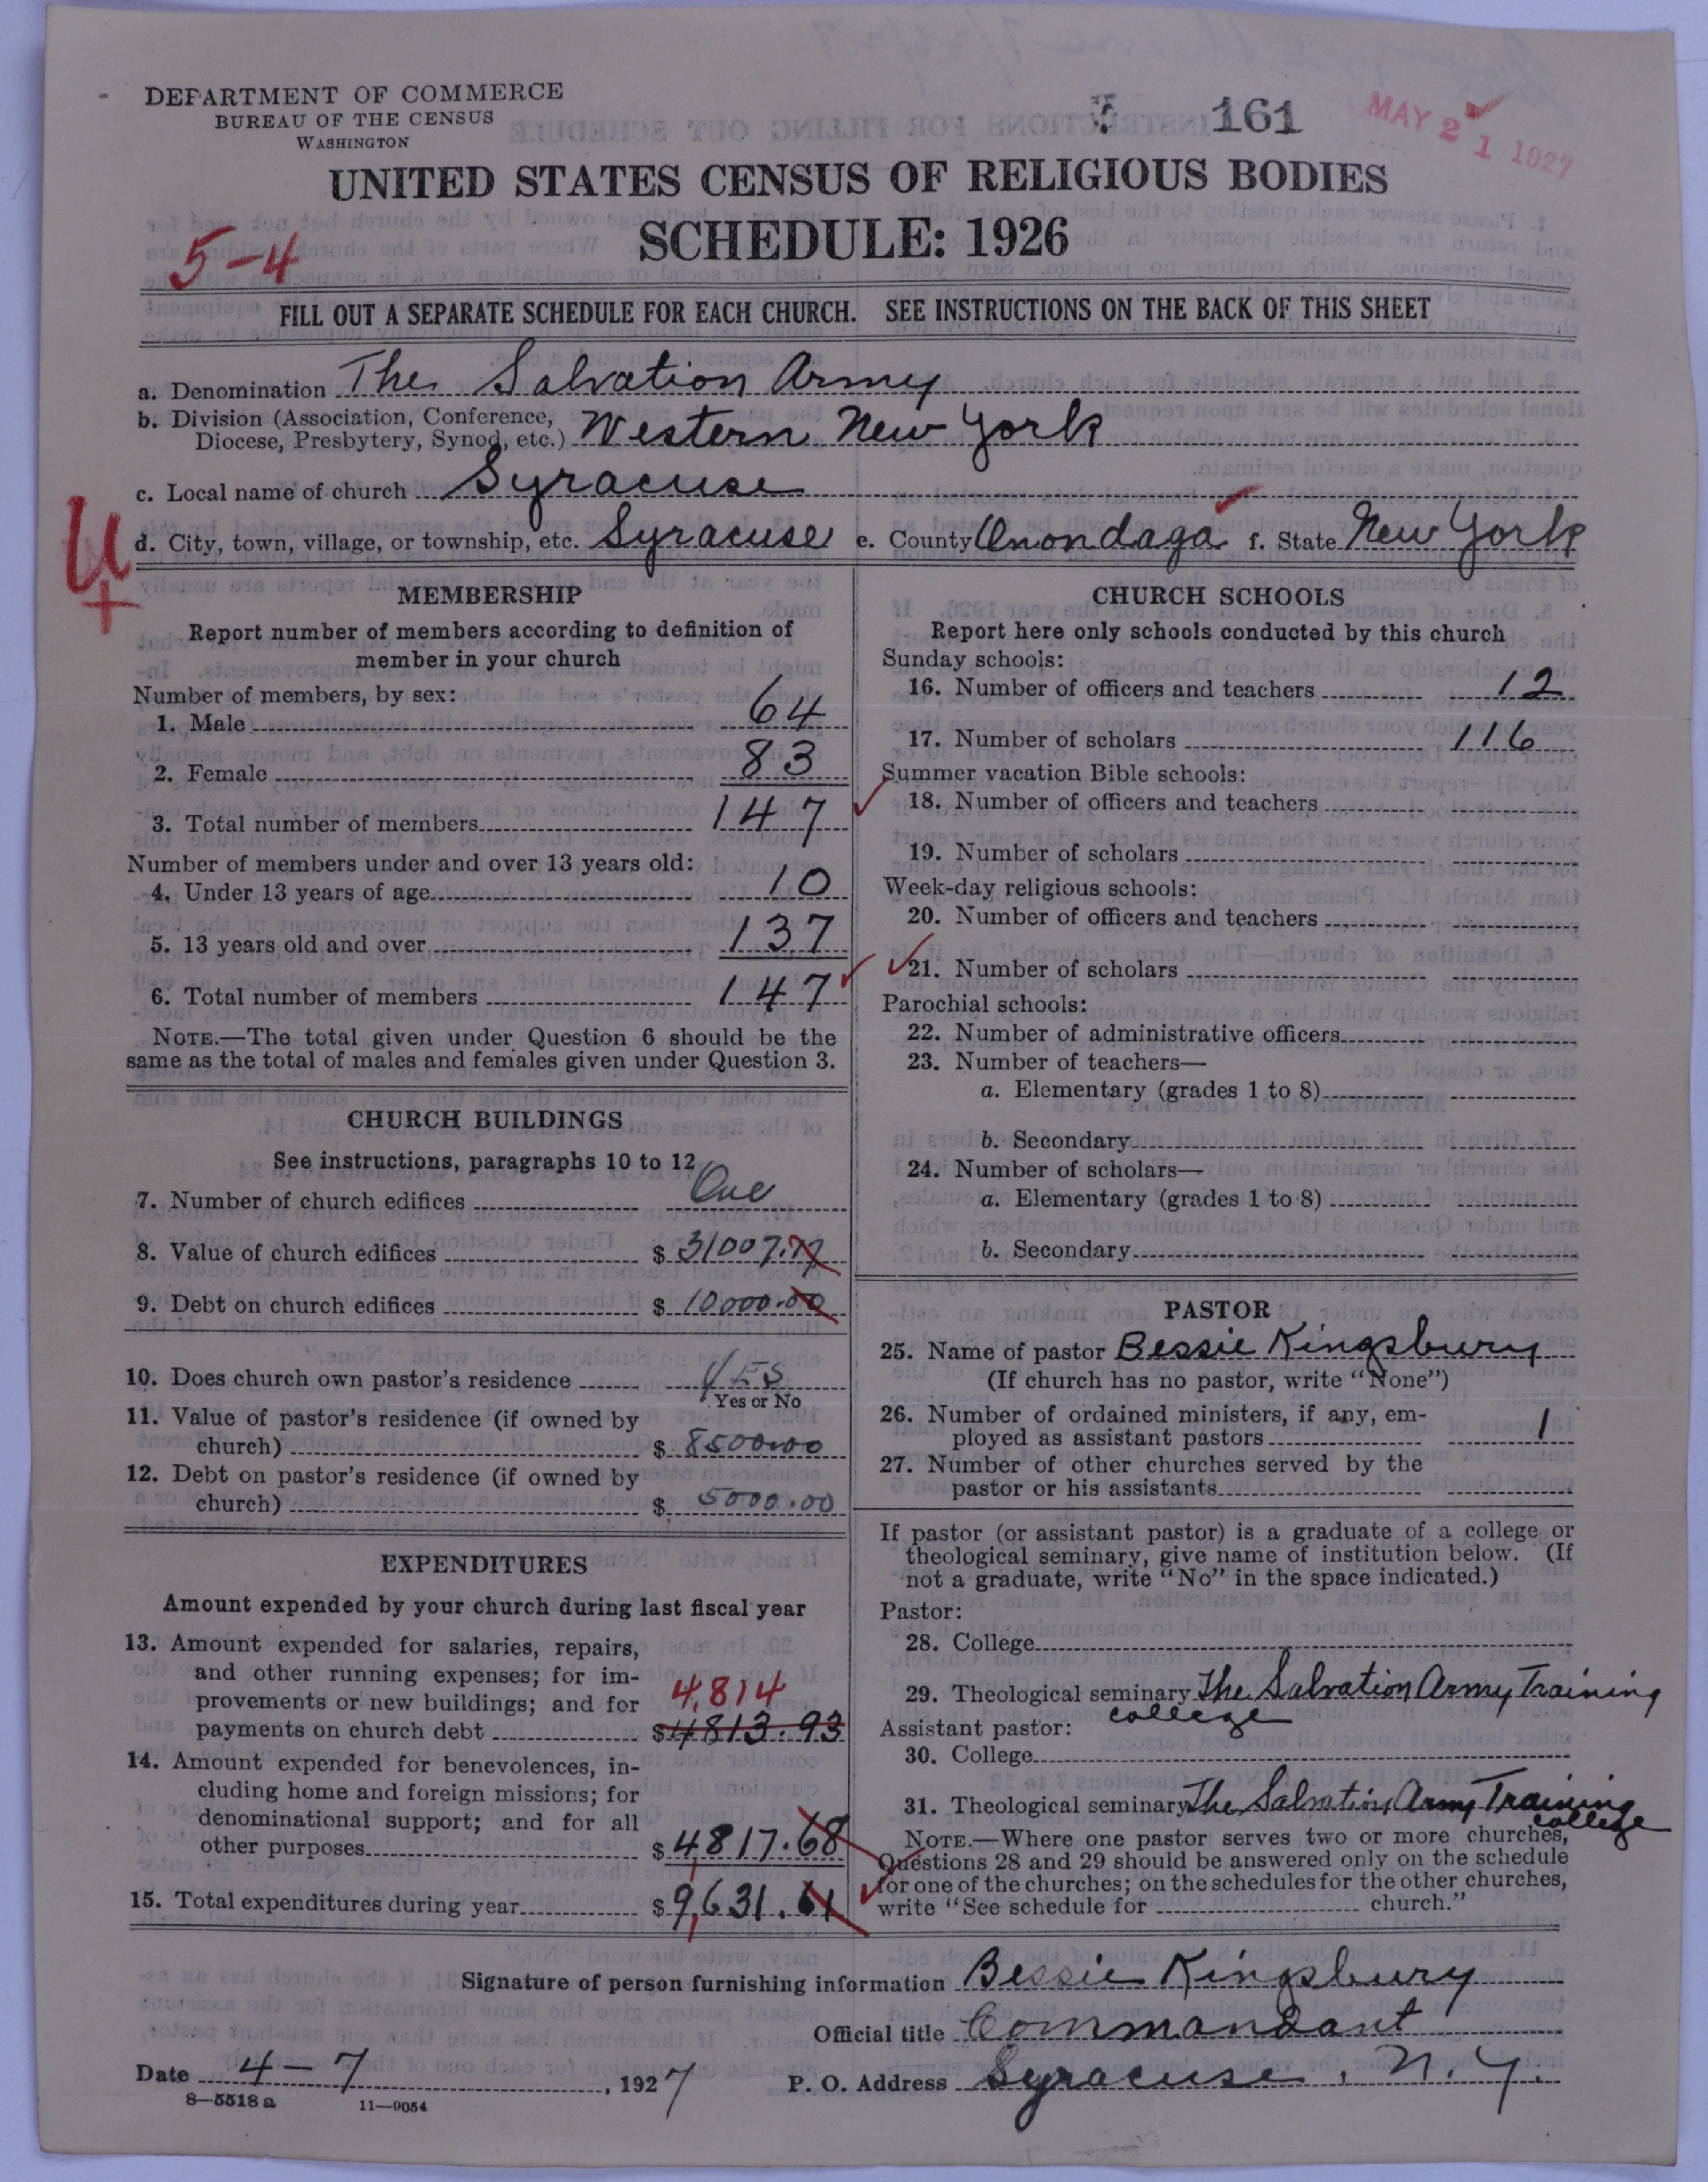 DEPARTMENT OF COMMERCE
BUREAU OF THE CENSUS
WASHINGTON
161
MAY 21 1927
UNITED STATES CENSUS OF RELIGIOUS BODIES
SCHEDULE: 1926
5-4
FILL OUT A SEPARATE SCHEDULE FOR EACH CHURCH. SEE INSTRUCTIONS ON THE BACK OF THIS SHEET
a. Denomination The Salvation Army
b. Division (Association, Conference,
Diocese, Presbytery, Synod, etc.) Western New York
c. Local name of church Syracuse
U
+
d. City, town, village, or township, etc. Syracuse e. County Onondaga f. State New York
MEMBERSHIP
Report number of members according to definition of
member in your church
Number of members, by sex:
1. Male 64
2. Female 83
3. Total number of members 147
Number of members under and over 13 years old:
4. Under 13 years of age 10
5. 13 years old and over 137
6. Total number of members 147
NOTE.—The total given under Question 6 should be the
same as the total of males and females given under Question 3.
CHURCH BUILDINGS
See instructions, paragraphs 10 to 12
7. Number of church edifices One
8. Value of church edifices $ 31007.77
9. Debt on church edifices $ 10000.00
10. Does church own pastor's residence YES
Yes or No
11. Value of pastor's residence (if owned by
church) $ 8500.00
12. Debt on pastor's residence (if owned by
church) $ 5000.00
EXPENDITURES
Amount expended by your church during last fiscal year
13. Amount expended for salaries, repairs,
and other running expenses; for im-
provements or new buildings; and for 4,814
payments on church debt $4813.93
14. Amount expended for benevolences, in-
cluding home and foreign missions; for
denominational support; and for all
other purposes $4,817.68
15. Total expenditures during year $9,631.61
CHURCH SCHOOLS
Report here only schools conducted by this church
Sunday schools:
16. Number of officers and teachers 12
17. Number of scholars 116
Summer vacation Bible schools:
18. Number of officers and teachers
19. Number of scholars
Week-day religious schools:
20. Number of officers and teachers
21. Number of scholars
Parochial schools:
22. Number of administrative officers
23. Number of teachers—
a. Elementary (grades 1 to 8)
b. Secondary
24. Number of scholars—
a. Elementary (grades 1 to 8)
b. Secondary
PASTOR
25. Name of pastor Bessie Kingsbury
(If church has no pastor, write "None")
26. Number of ordained ministers, if any, em-
ployed as assistant pastors 1
27. Number of other churches served by the
pastor or his assistants
If pastor (or assistant pastor) is a graduate of a college or
theological seminary, give name of institution below. (If
not a graduate, write "No" in the space indicated.)
Pastor:
28. College
29. Theological seminary The Salvation Army Training
college
Assistant pastor:
30. College
31. Theological seminary The Salvation Army Training
college
NOTE.—Where one pastor serves two or more churches,
Questions 28 and 29 should be answered only on the schedule
for one of the churches; on the schedules for the other churches,
write "See schedule for church."
Signature of person furnishing information Bessie Kingsbury
Official title Commandant
Date 4-7, 1927 P. O. Address Syracuse, N.Y.
8—5518a 11—9054